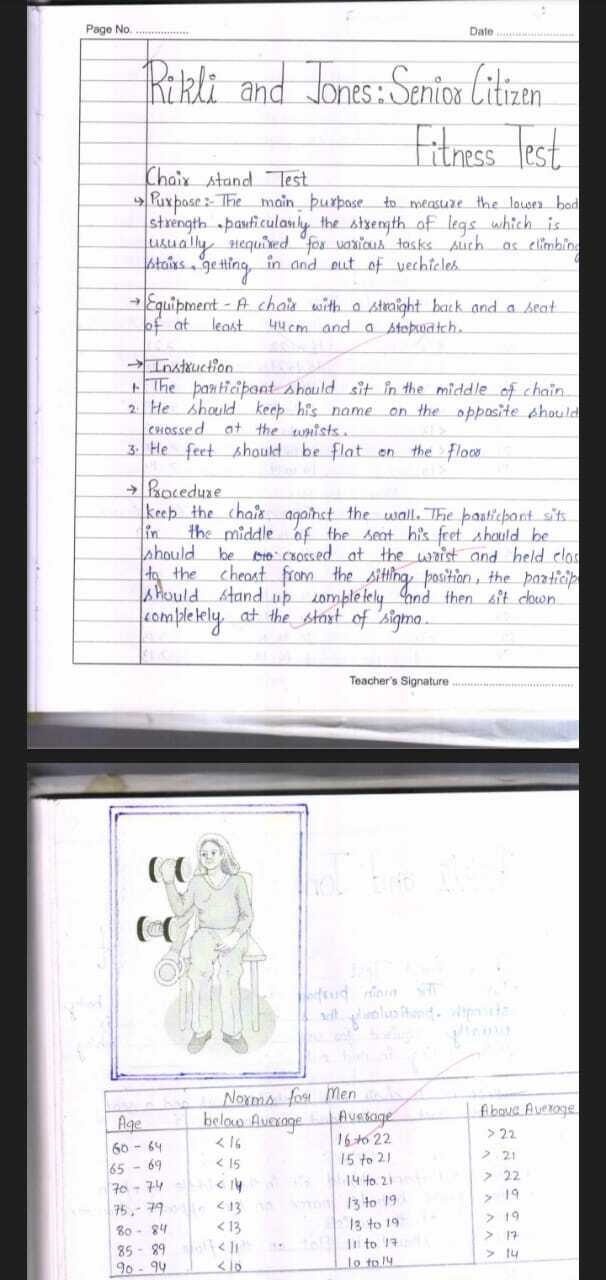 Page No. ................
Date ........................
Rikli and Jones: Senior Citizen
Fitness Test
Chair stand Test
↳ Purpose:- The main purpose to measure the lower bod
strength . particularly the strength of legs which is
usually required for various tasks such as climbing
stairs, getting in and out of vechicles
→ Equipment - A chair with a straight back and a seat
of at least 44cm and a stopwatch.
→ Instruction
1. The participant should sit in the middle of chain
2. He should keep his name on the opposite should
crossed at the wrists.
3. He feet should be flat on the floor
→ Procedure
keep the chair against the wall. The participant sits
in the middle of the seat his feet should be
should be crossed at the wrist and held clos
to the cheast from the sitting position, the particip
should stand up completely and then sit down
completely, at the start of sigma.
Teacher's Signature ................................
Norms for Men
Age below Average Average Above Average
60 - 64 <16 16 to 22 > 22
65 - 69 <15 15 to 21 > 21
70 - 74 <14 14 to 21 > 22
75 - 79 <13 13 to 19 > 19
80 - 84 <13 13 to 19 > 19
85 - 89 <11 11 to 17 > 17
90 - 94 <10 10 to 14 > 14